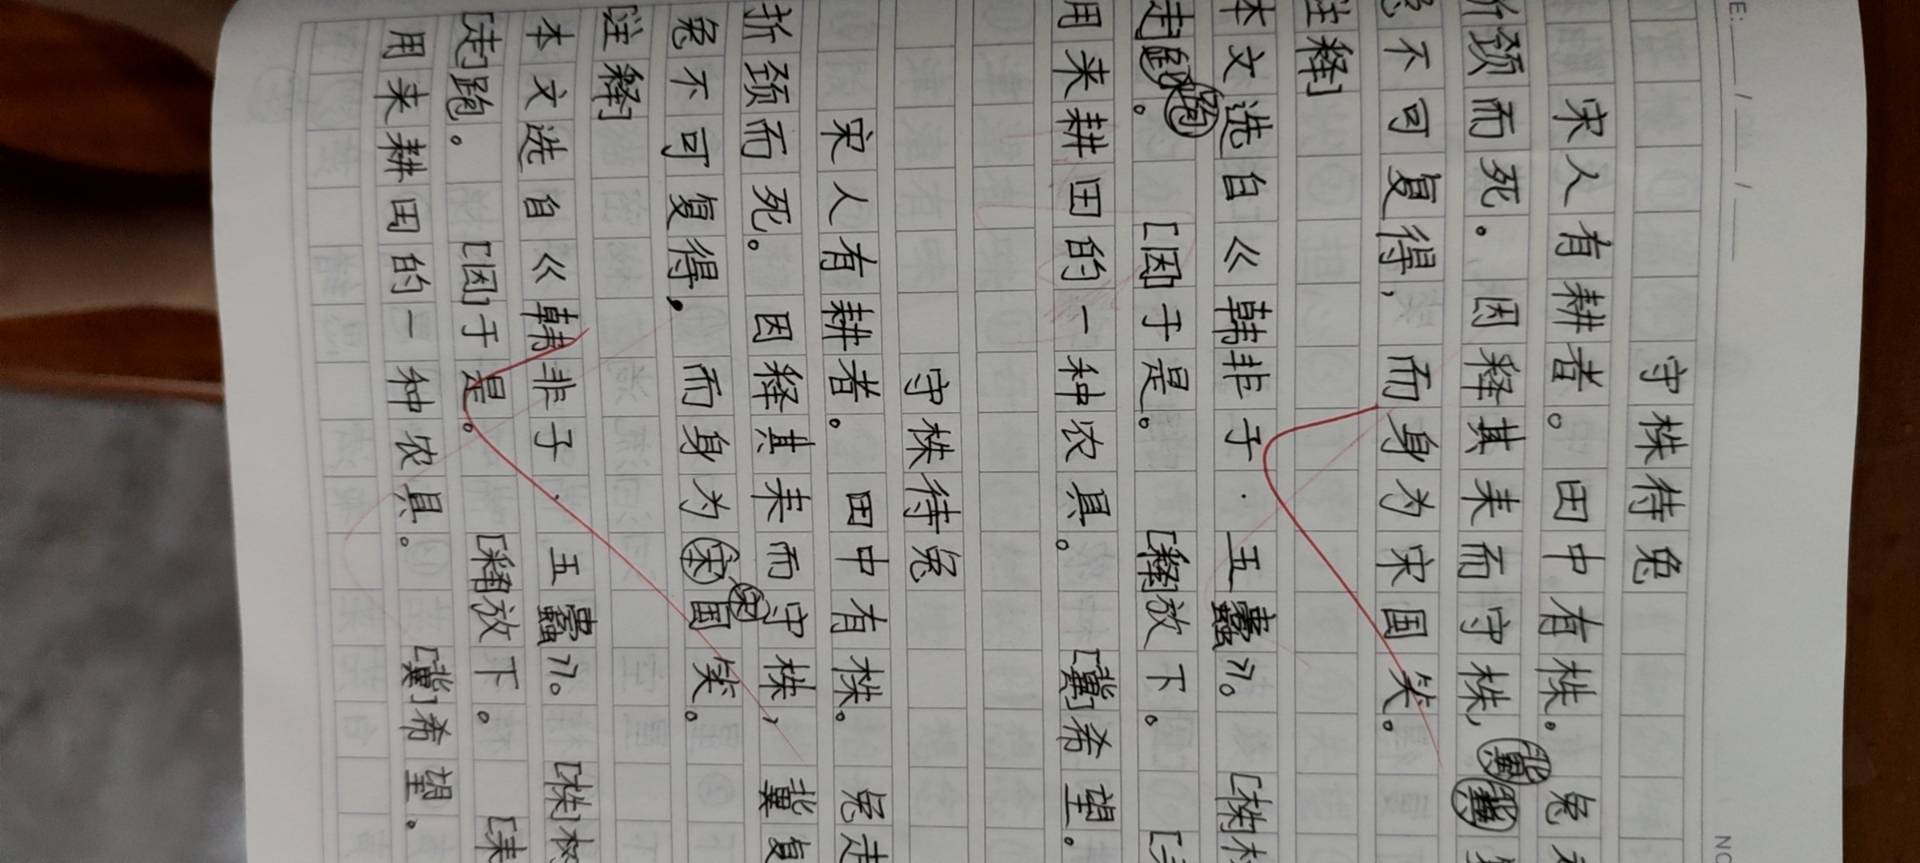 守株待兔
宋人有耕者。田中有株。兔
折颈而死。因释其耒而守株,
兔不可复得,而身为宋国笑。
注释]
本文选自《韩非子·五蠹》。[株]树
走]跑。[因]于是。[释]放下。[耒]
用来耕田的一种农具。[冀]希望。
守株待兔
宋人有耕者。田中有株。兔走
折颈而死。因释其耒而守株,冀复
兔不可复得,而身为宋国笑。
[注释]
本文选自《韩非子·五蠹》。[株]树
[走]跑。[因]于是。[释]放下。[耒
用来耕田的一种农具。[冀]希望。